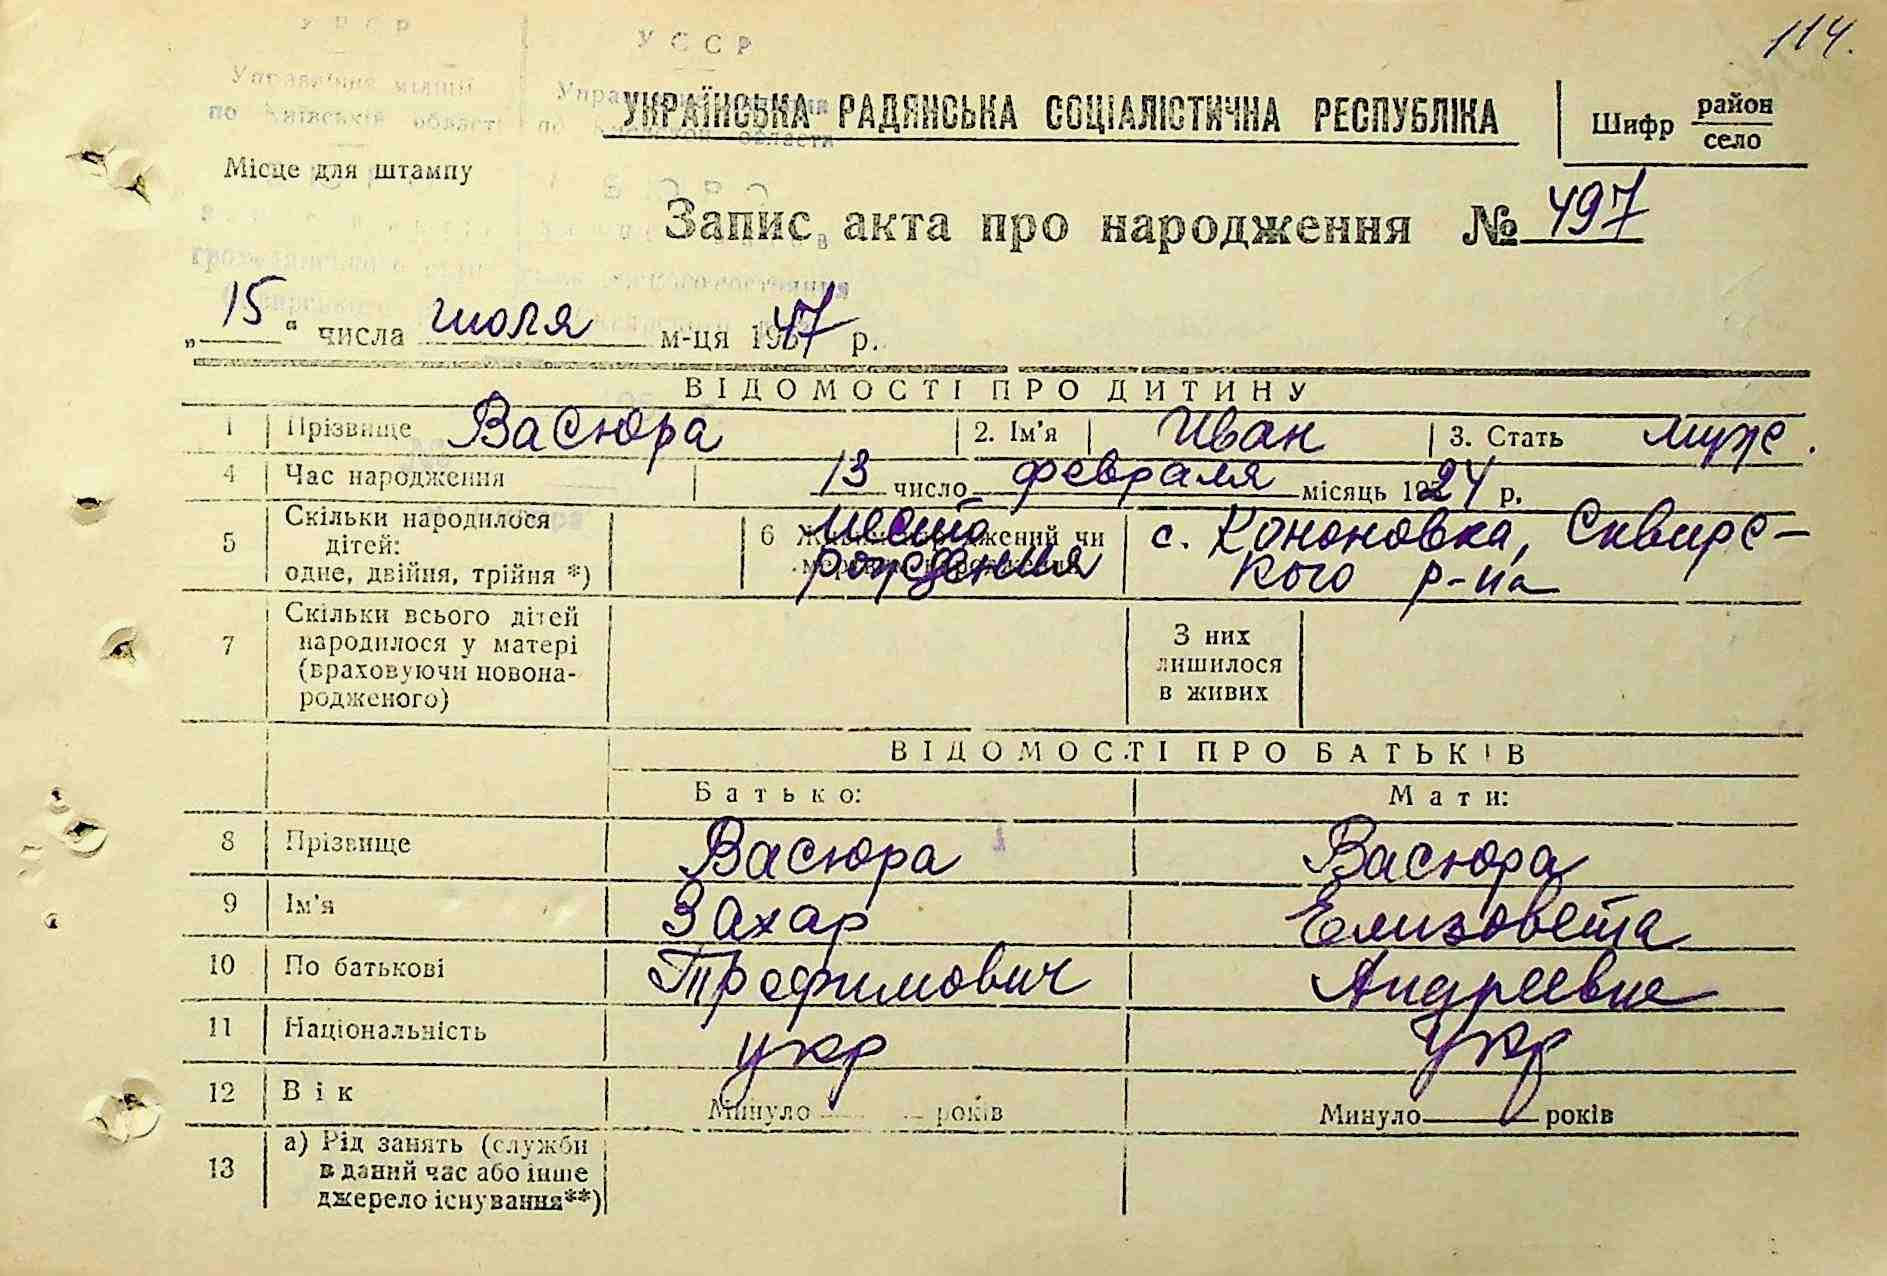 114.
УССР
УКРАЇНСЬКА РАДЯНСЬКА СОЦІАЛІСТИЧНА РЕСПУБЛІКА
Шифр район
село
Місце для штампу
Запис акта про народження № 497
„15“ числа июля м-ця 1947 р.
ВІДОМОСТІ ПРО ДИТИНУ
1 Прізвище Васюра 2. Ім'я Иван 3. Стать муж.
4 Час народження 13 число февраля місяць 1924 р.
5 Скільки народилося
дітей:
одне, двійня, трійня *)
6 место
рождения
с. Кононовка, Сквирс-
кого р-на
7 Скільки всього дітей
народилося у матері
(враховуючи новона-
родженого)
З них
лишилося
в живих
ВІДОМОСТІ ПРО БАТЬКІВ
Батько: Мати:
8 Прізвище Васюра Васюра
9 Ім'я Захар Елизовета
10 По батькові Трофимович Андреевна
11 Національність укр укр
12 Вік Минуло років Минуло років
13 а) Рід занять (служби
в даний час або інше
джерело існування**)